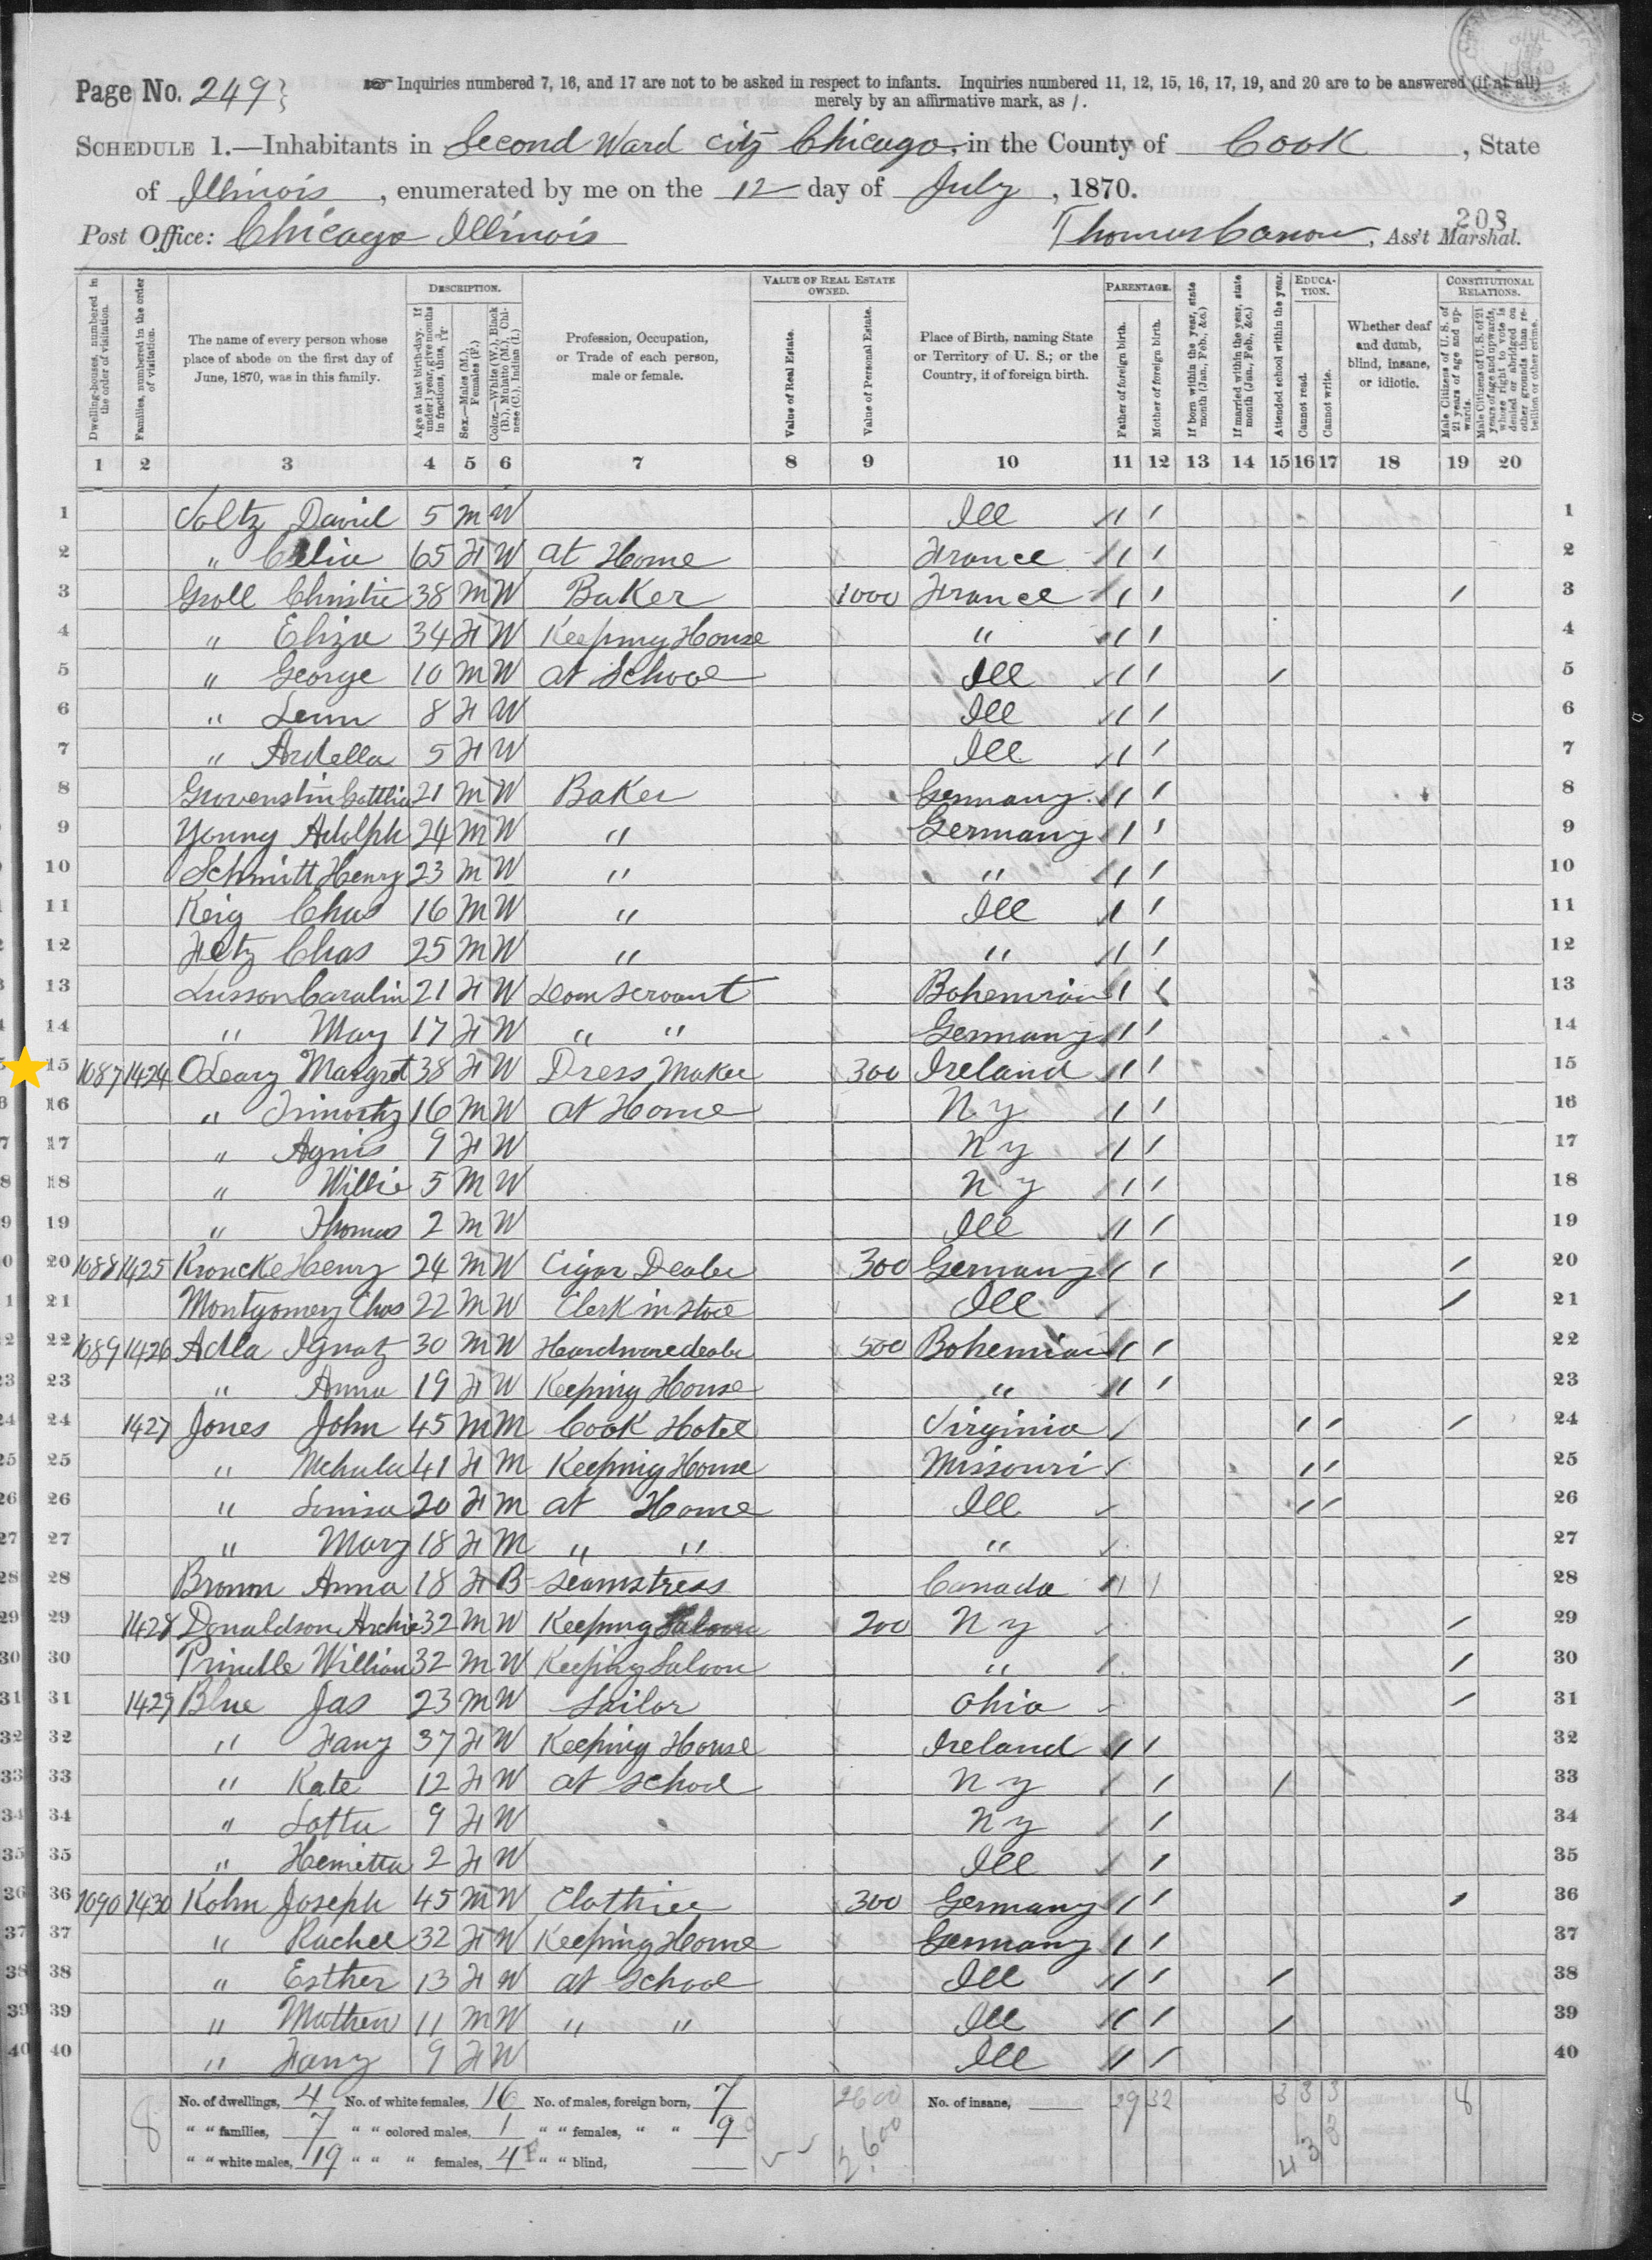 Page No. 249
Inquiries numbered 7, 16, and 17 are not to be asked in respect to infants. Inquiries numbered 11, 12, 15, 16, 17, 19, and 20 are to be answered (if at all)
merely by an affirmative mark, as /.
SCHEDULE 1.—Inhabitants in Second Ward City Chicago, in the County of Cook, State
of Illinois, enumerated by me on the 12 day of July, 1870.
208
Post Office: Chicago Illinois Thomas, Ass't Marshal.
Dwelling-houses, numbered in the order of visitation.
Families, numbered in the order of visitation.
The name of every person whose place of abode on the first day of June, 1870, was in this family.
DESCRIPTION.
Age at last birth-day. If under 1 year, give months in fractions, thus,
Sex.—Males (M.), Females (F.)
Color.—White (W.), Black (B.), Mulatto (M.), Chinese (C.), Indian (I.)
Profession, Occupation, or Trade of each person, male or female.
VALUE OF REAL ESTATE OWNED.
Value of Real Estate.
Value of Personal Estate.
Place of Birth, naming State or Territory of U. S.; or the Country, if of foreign birth.
PARENTAGE.
Father of foreign birth.
Mother of foreign birth.
If born within the year, state month (Jan., Feb., &c.)
If married within the year, state month (Jan., Feb., &c.)
Attended school within the year.
EDUCATION.
Cannot read.
Cannot write.
Whether deaf and dumb, blind, insane, or idiotic.
CONSTITUTIONAL RELATIONS.
Male Citizens of U. S. of 21 years of age and upwards.
Male Citizens of U. S. of 21 years of age and upwards, whose right to vote is denied or abridged on other grounds than rebellion or other crime.
1 2 3 4 5 6 7 8 9 10 11 12 13 14 15 16 17 18 19 20
1 Voltz David 5 M W Ill / / 1
2 " Celia 65 F W At Home France / / 2
3 Groll Christie 38 M W Baker 1000 France / / / 3
4 " Eliza 34 F W Keeping House " / / 4
5 " George 10 M W At School Ill / / / 5
6 " Lenn 8 F W Ill / / 6
7 " Ardella 5 F W Ill / / 7
8 21 M W Baker Germany / / 8
9 Young Adolph 24 M W " Germany / / 9
10 Schmitt Henry 23 M W " " / / 10
11 Keig Chas 16 M W " Ill / / 11
12 Fetz Chas 25 M W " " / / 12
13 Lusson Caralin 21 F W Dom Servant Bohemian / / 13
14 " May 17 F W " " Germany / / 14
15 1087 1424 OLeary Margret 38 F W Dress Maker 300 Ireland / / 15
16 " Timorty 16 M W At Home N Y / / 16
17 " Agnis 9 F W N Y / / 17
18 " Willie 5 M W N Y / / 18
19 " Thomas 2 M W Ill / / 19
20 1088 1425 Kroncke Henry 24 M W Cigar Dealer 300 Germany / / / 20
21 Montgomery Chas 22 M W Clerk in Store Ill / 21
22 1089 1426 Adla Ignatz 30 M W Hardware dealer 500 Bohemian / / 22
23 " Anna 19 F W Keeping House " / / 23
24 1427 Jones John 45 M M Cook Hotel Virginia / / / 24
25 " 41 F M Keeping House Missouri / / 25
26 " Louisa 20 F M At Home Ill / / 26
27 " Mary 18 F M " " " 27
28 Brown Anna 18 F B Seamstress Canada / / 28
29 1428 Donaldson Archie 32 M W Keeping Saloon 200 N Y / 29
30 William 32 M W Keeping Saloon " / 30
31 1429 Blue Jas 23 M W Sailor Ohio / 31
32 " Fany 37 F W Keeping House Ireland / / 32
33 " Kate 12 F W At School N Y / / 33
34 " Lotta 9 F W N Y / 34
35 " Henietta 2 F W Ill / 35
36 1090 1430 Kohn Joseph 45 M W Clothier 300 Germany / / / 36
37 " Rachel 32 F W Keeping House Germany / / 37
38 " Esther 13 F W At School Ill / / / 38
39 " Mathew 11 M W " " Ill / / / 39
40 " Fany 9 F W Ill / / 40
No. of dwellings, 4 No. of white females, 16 No. of males, foreign born, 7 2600 No. of insane, 29 32 3 3 3 8
" " families, 7 " " colored males, 1 " " females, " " 9
" " white males, 19 " " " females, 4 " " blind,
8 2,600 4 3